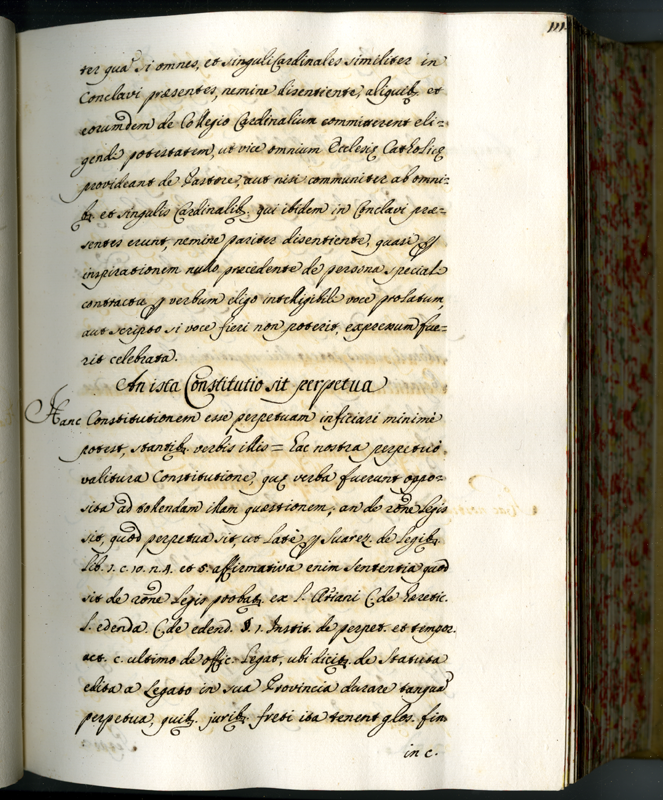 111
ter qua' si omnes, et singuli Cardinales similiter in
Conclavi præsentes, nemine disentiente, aliquib. et
eorumdem de Collegio Cardinalium committerent eli=
gendi potestatem, ut vice omnium Ecclesię Catholicę
provideant de Pastore, aut nisi communiter ab omni=
b. et singulis Cardinalib. qui ibidem in Conclavi præ=
sentes erunt, nemine pariter disentiente, quasi p
inspirationem nullo præcedente de persona speciali
contractu p verbum eligo intelligibili voce prolatum
aut scripto si voce fieri non poterit, expressum fue=
rit celebrata.
An ista Constitutio sit perpetua
Hanc Constitutionem esse perpetuam inficiari minime
potest, stantib. verbis illis= Hac nostra perpetuò
valitura Constitutione, quę verba fuerunt appo=
sita ad tollendam illam quæstionem; an de rõne legis
sit, quòd perpetua sit, ut latè p Suarez de legib.
lib. 1. c. 10. n. 4. et 5. affirmativa enim sententia quod
sit de rõne legis probat. ex l. Arriani C. de hæretic.
l. edenda C. de edend. §. 1. Instit. de perpet. et tempor.
act. c. ultimo de offic. Legat, ubi dicit. de Statuta
edita a Legato in sua Provincia durare tanqua'
perpetua, quib. jurib. freti ita tenent glos. fin.
in c.